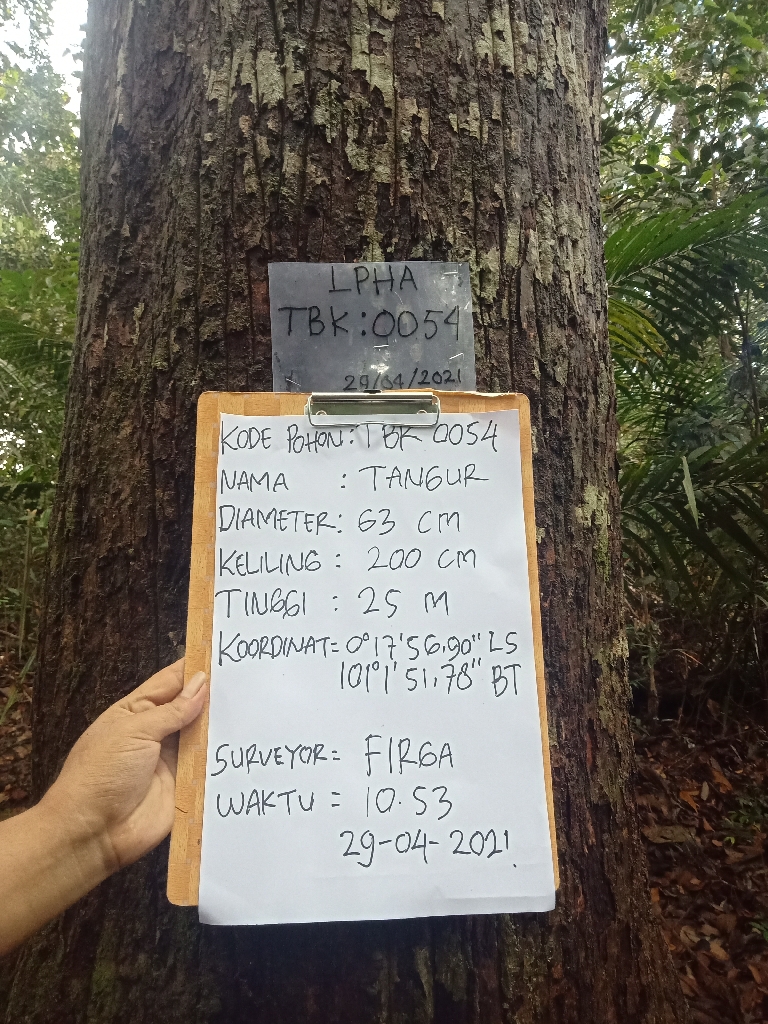 LPHA
TBK:0054
29/04/2021
KODE POHON: TBK 0054
NAMA : TANGUR
DIAMETER: 63 CM
KELILING: 200 CM
TINGGI : 25 M
KOORDINAT= 0°17'56,90" LS
101°1'51,78" BT
SURVEYOR= FIRGA
WAKTU = 10.53
29-04-2021